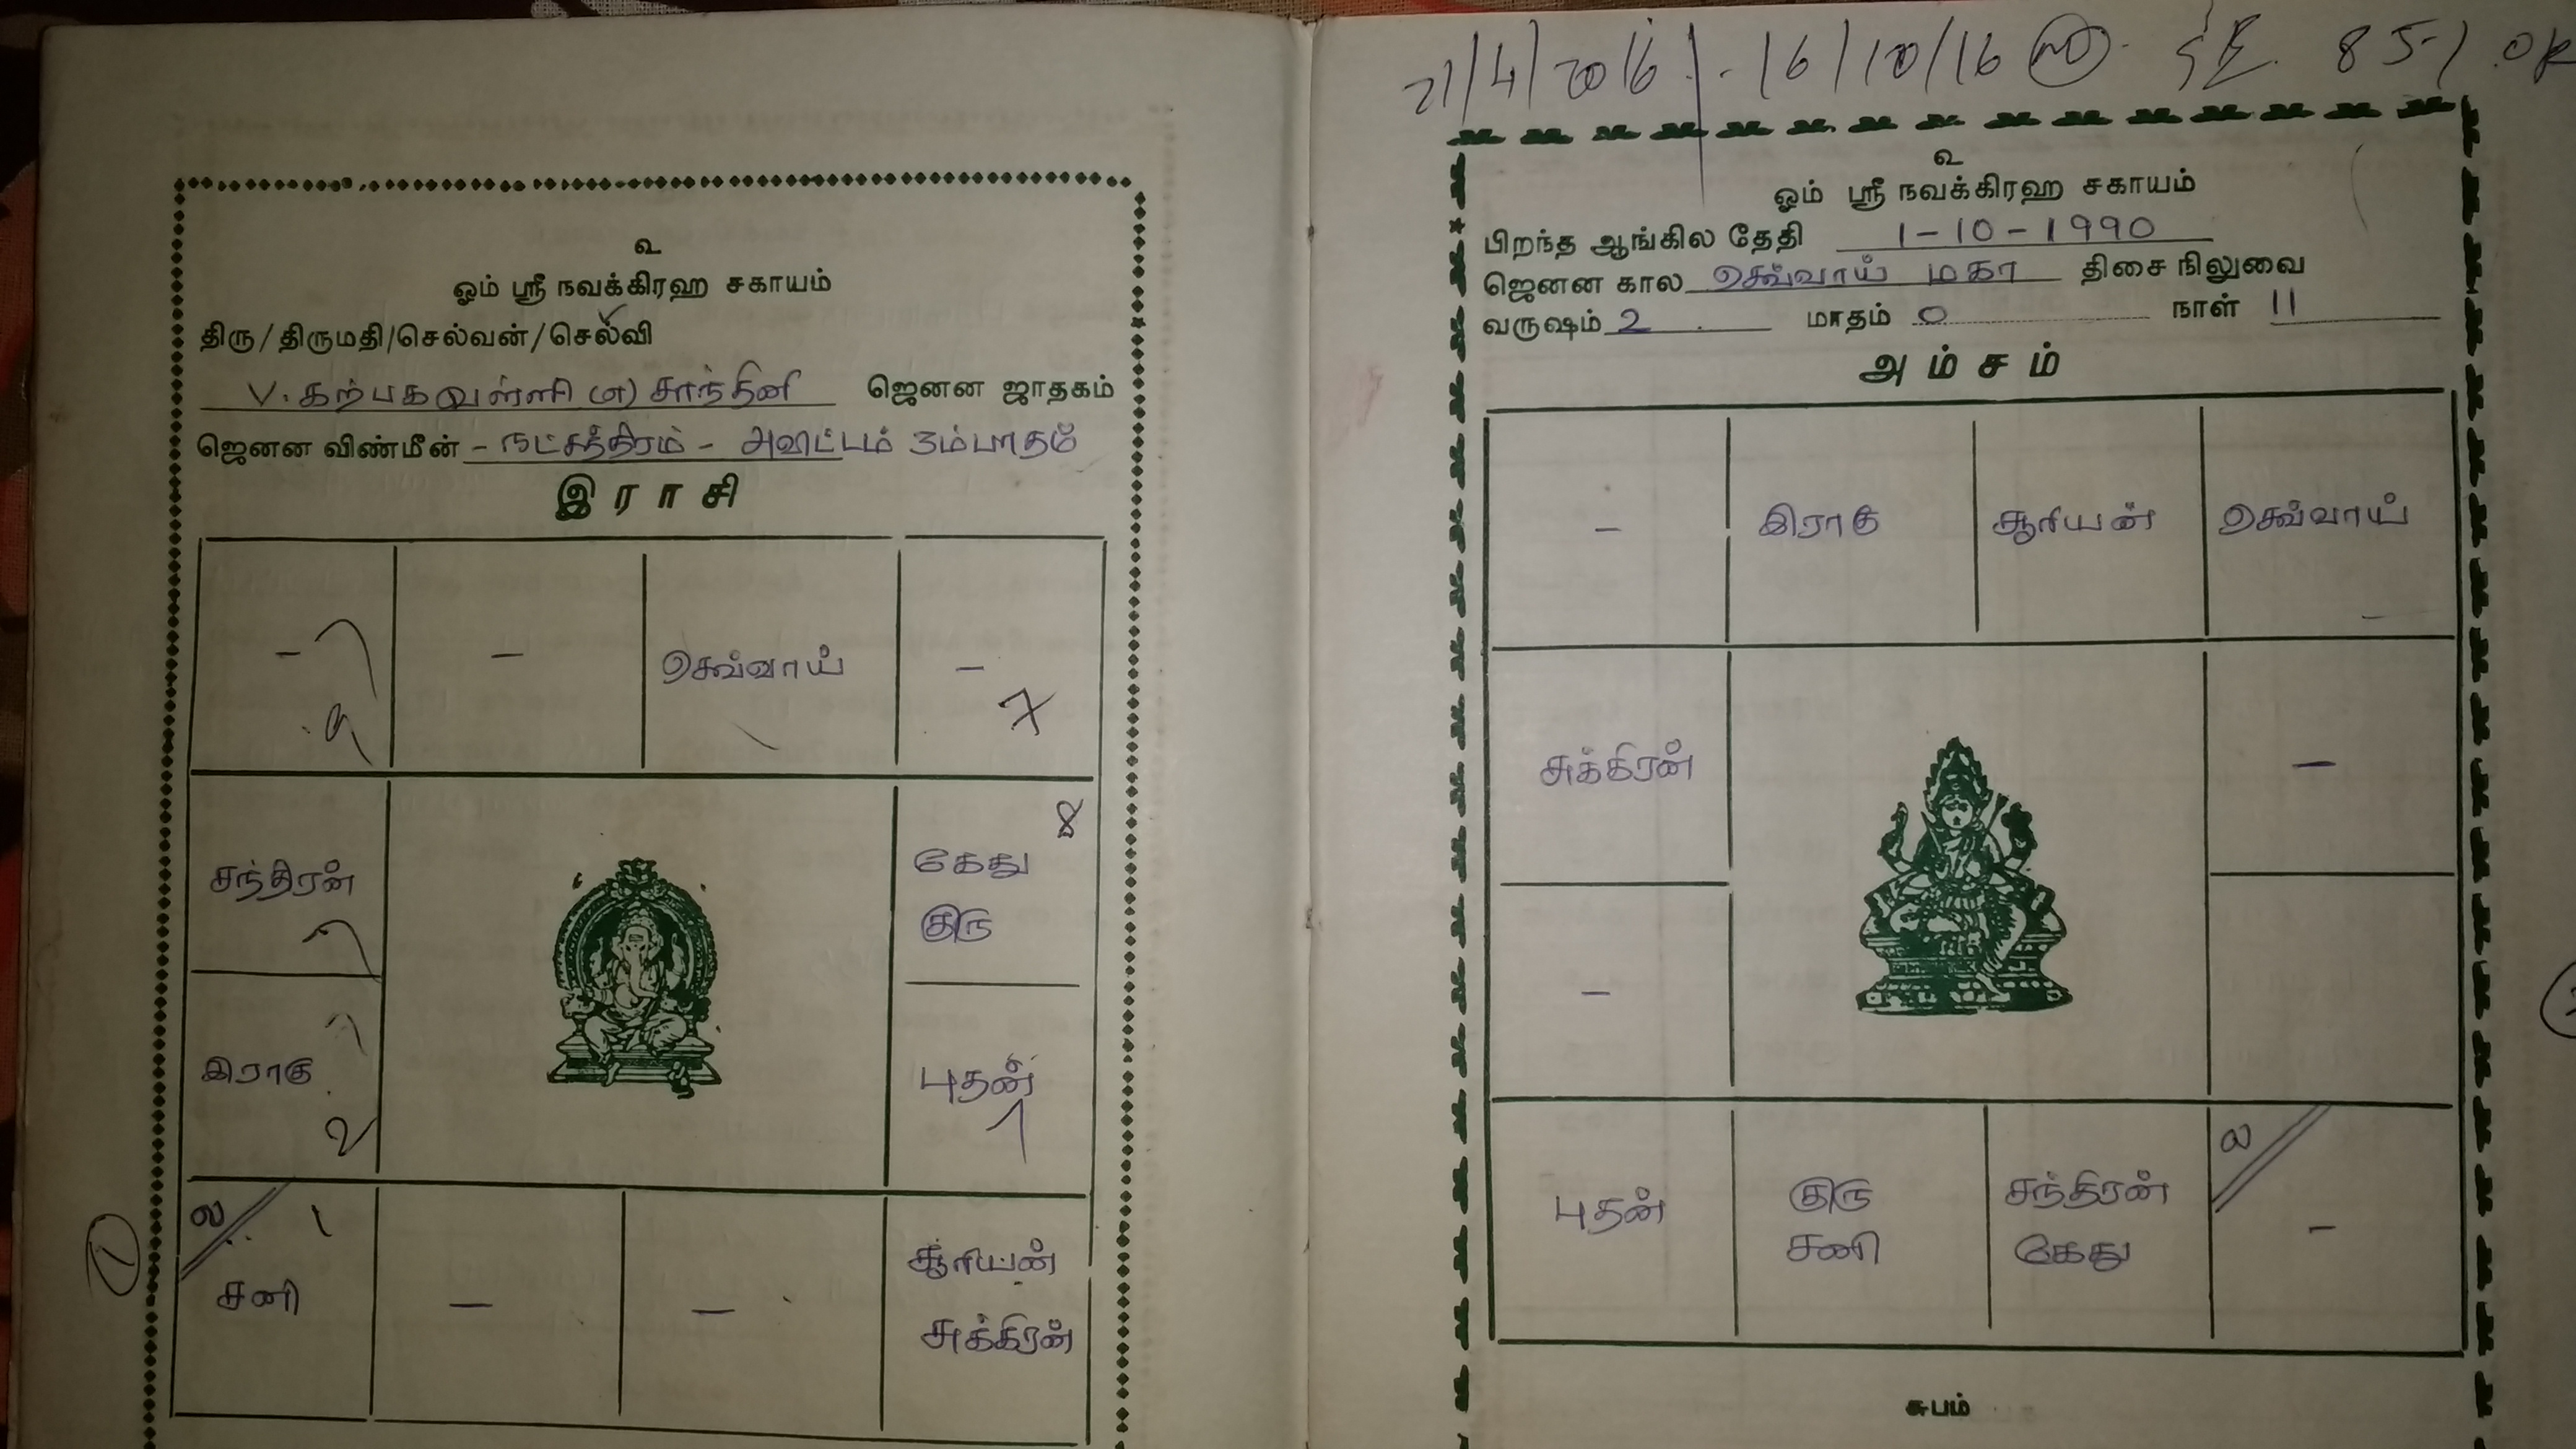 உ
ஓம் ஸ்ரீ நவக்கிரஹ சகாயம்
திரு/திருமதி/செல்வன்/செல்வி
V. கற்பகவள்ளி (எ) சாந்தினி ஜெனன ஜாதகம்
ஜெனன விண்மீன் - நட்சத்திரம் - அவிட்டம் 3ம்பாதம்
இராசி
- -
செவ்வாய்
- 7
சந்திரன்
கேது 8
குரு
இராகு 2
புதன்
ல
சனி
- -
சூரியன்
சுக்கிரன்
1
21/4/2016 - 16/10/16 85-/ OK
உ
ஓம் ஸ்ரீ நவக்கிரஹ சகாயம்
பிறந்த ஆங்கில தேதி 1-10-1990
ஜெனன கால செவ்வாய் மகா திசை நிலுவை
வருஷம் 2 மாதம் 0 நாள் 11
அம்சம்
- இராகு சூரியன் செவ்வாய்
சுக்கிரன் -
-
புதன்
குரு
சனி
சந்திரன்
கேது
ல
-
சுபம்